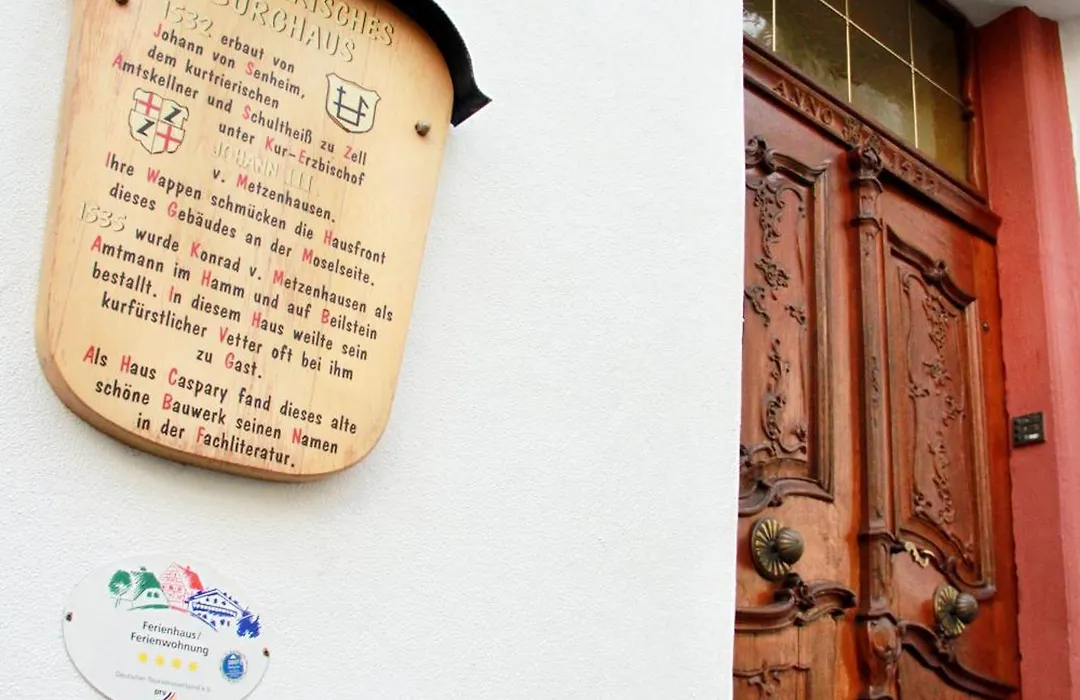 BURGHAUS
1532 erbaut von
Johann von Senheim,
dem kurtrierischen
Amtskellner und Schultheiß zu Zell
unter Kur-Erzbischof
JOHANN III.
v. Metzenhausen.
Ihre Wappen schmücken die Hausfront
dieses Gebäudes an der Moselseite.
1535 wurde Konrad v. Metzenhausen als
Amtmann im Hamm und auf Beilstein
bestallt. In diesem Haus weilte sein
kurfürstlicher Vetter oft bei ihm
zu Gast.
Als Haus Caspary fand dieses alte
schöne Bauwerk seinen Namen
in der Fachliteratur.
Ferienhaus/
Ferienwohnung
Deutscher Tourismusverband e.V.
ANNO